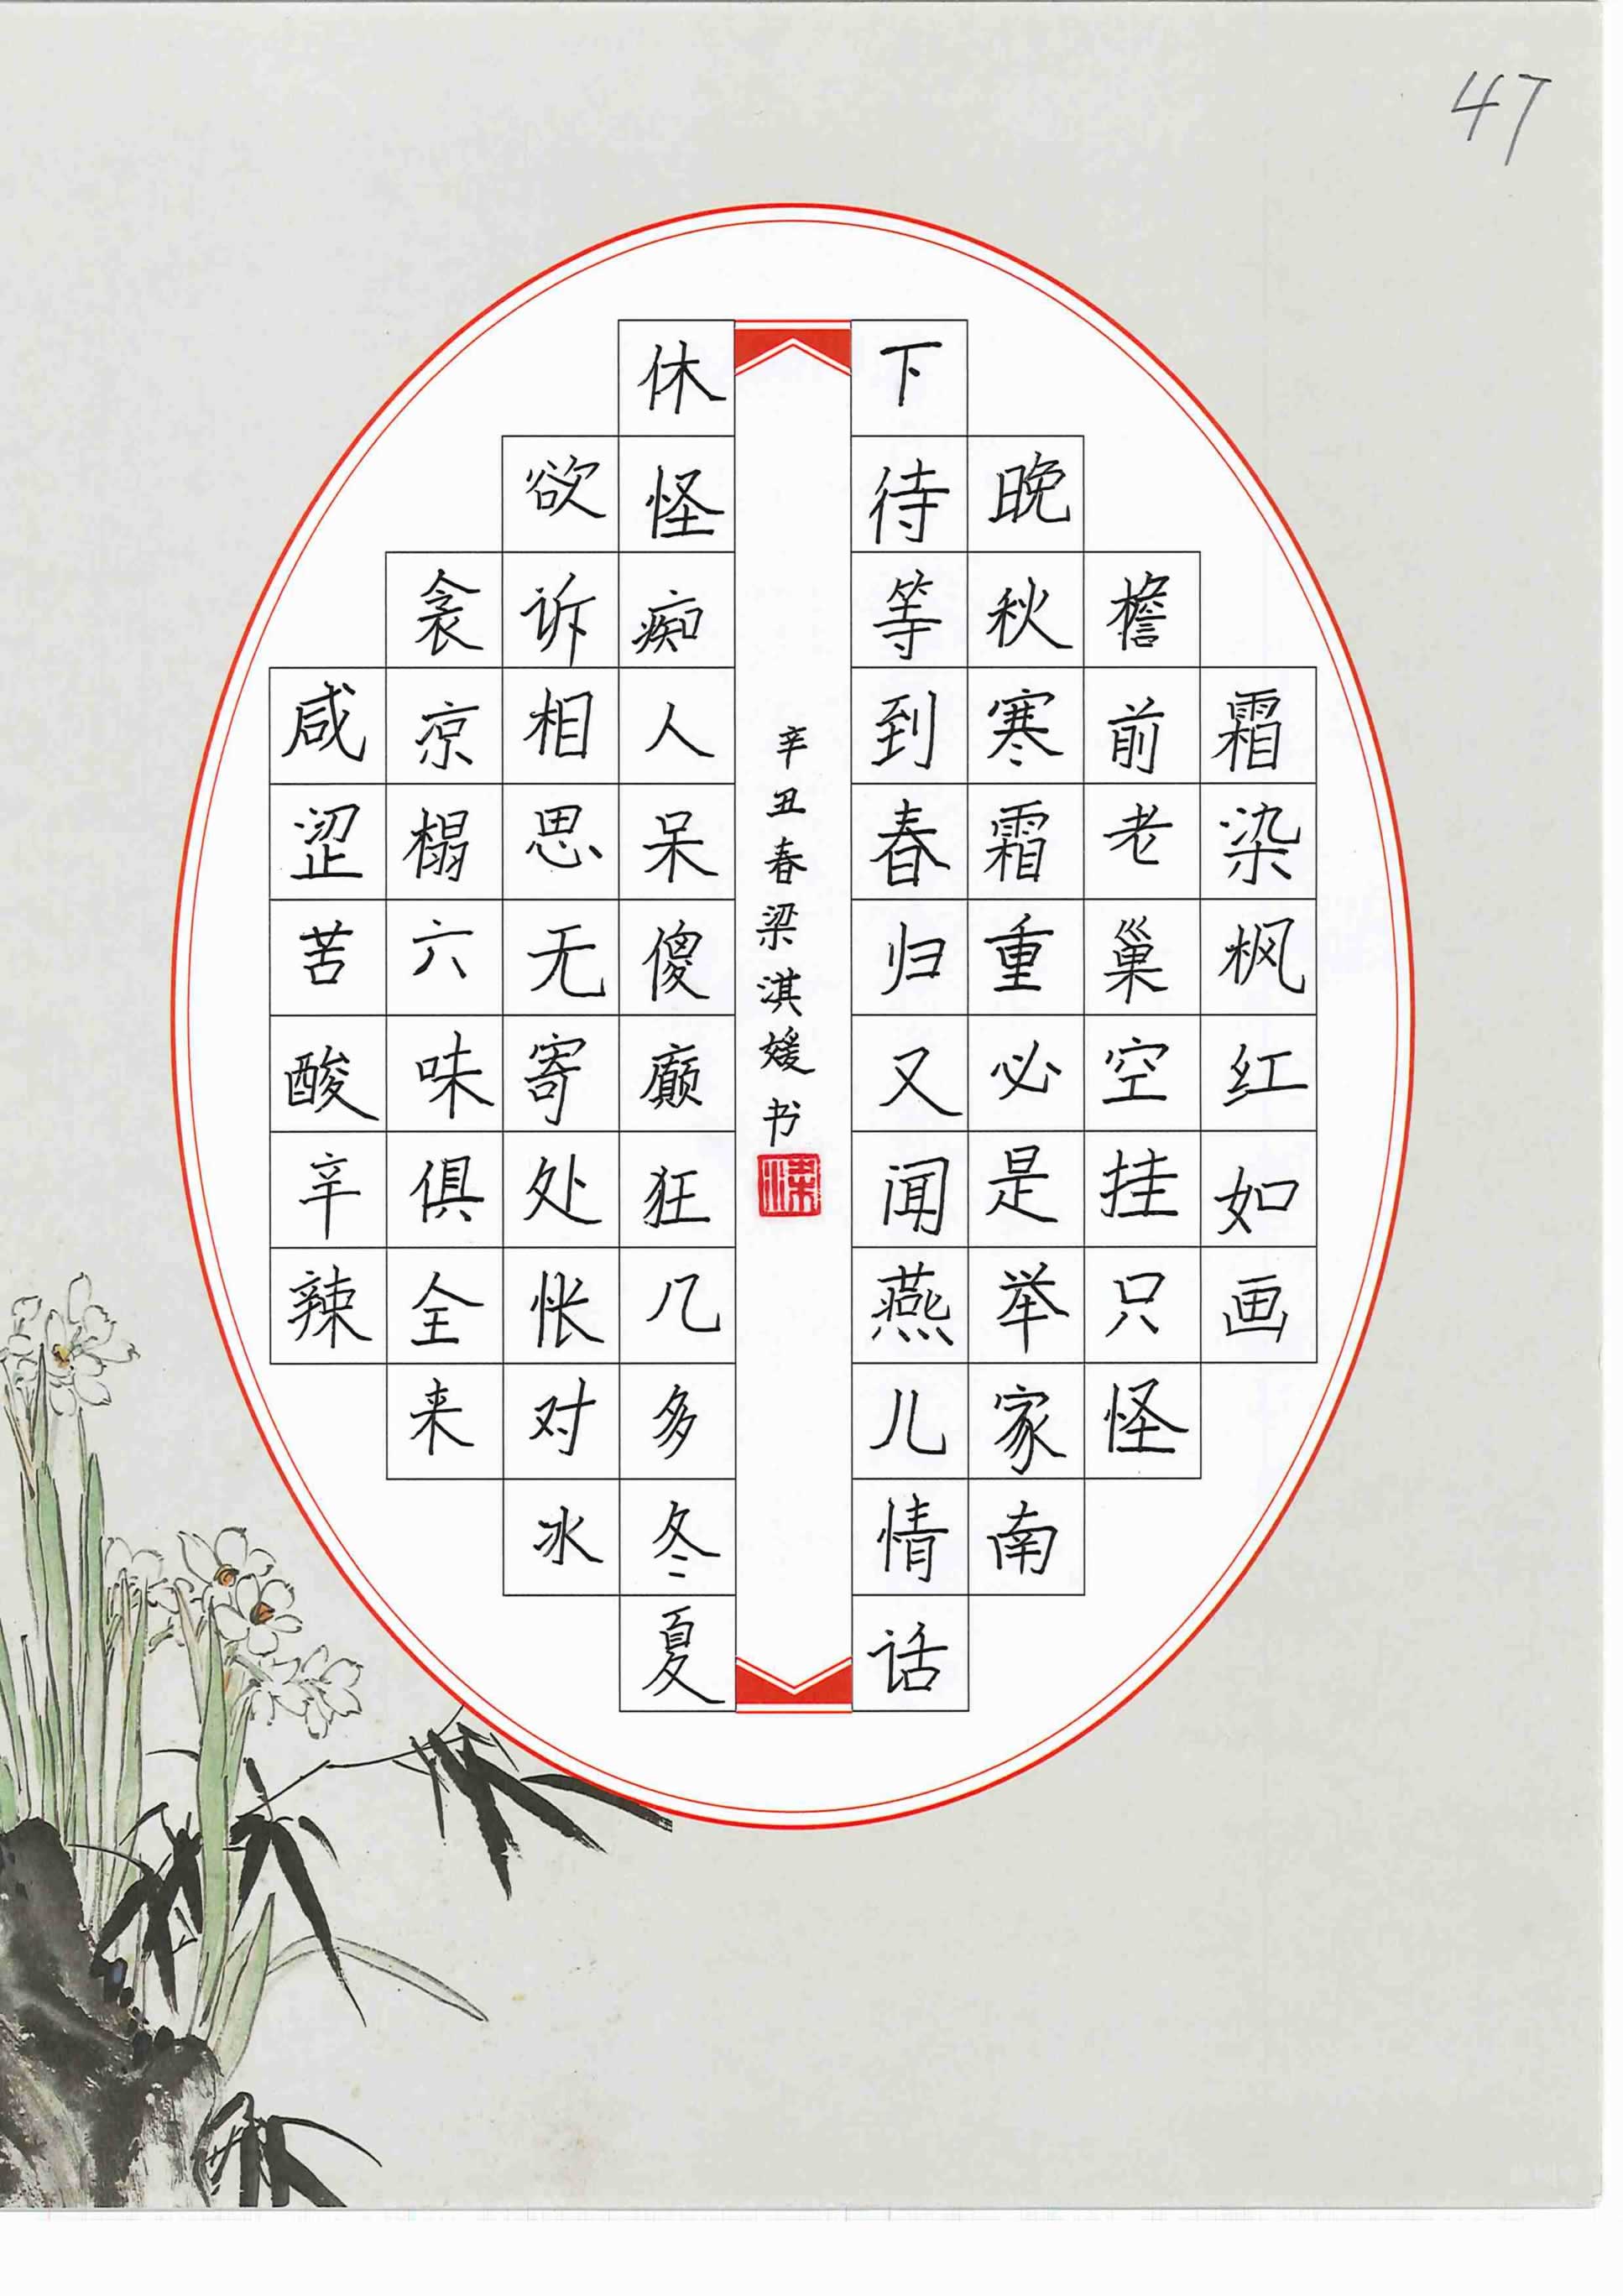 47
霜染枫红如画
檐前老巢空挂只怪
晚秋寒霜重必是举家南
下待等到春归又闻燕儿情话
休怪痴人呆傻癫狂几多冬夏
欲诉相思无寄处怅对冰
衾凉榻六味俱全来
咸涩苦酸辛辣
辛丑春梁淇媛书